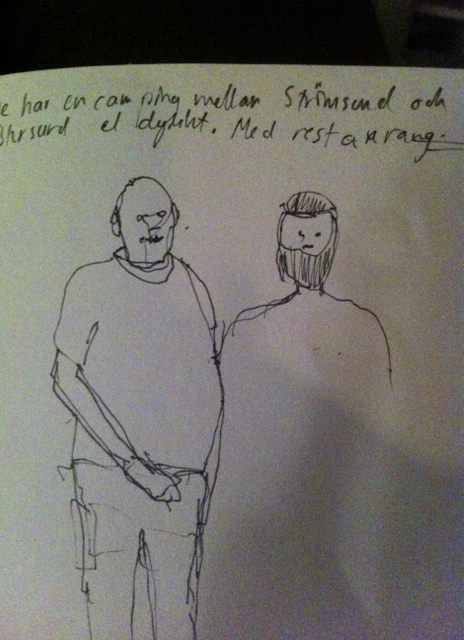 e har en camping mellan Strömsund och
el dylikt. Med restaurang.